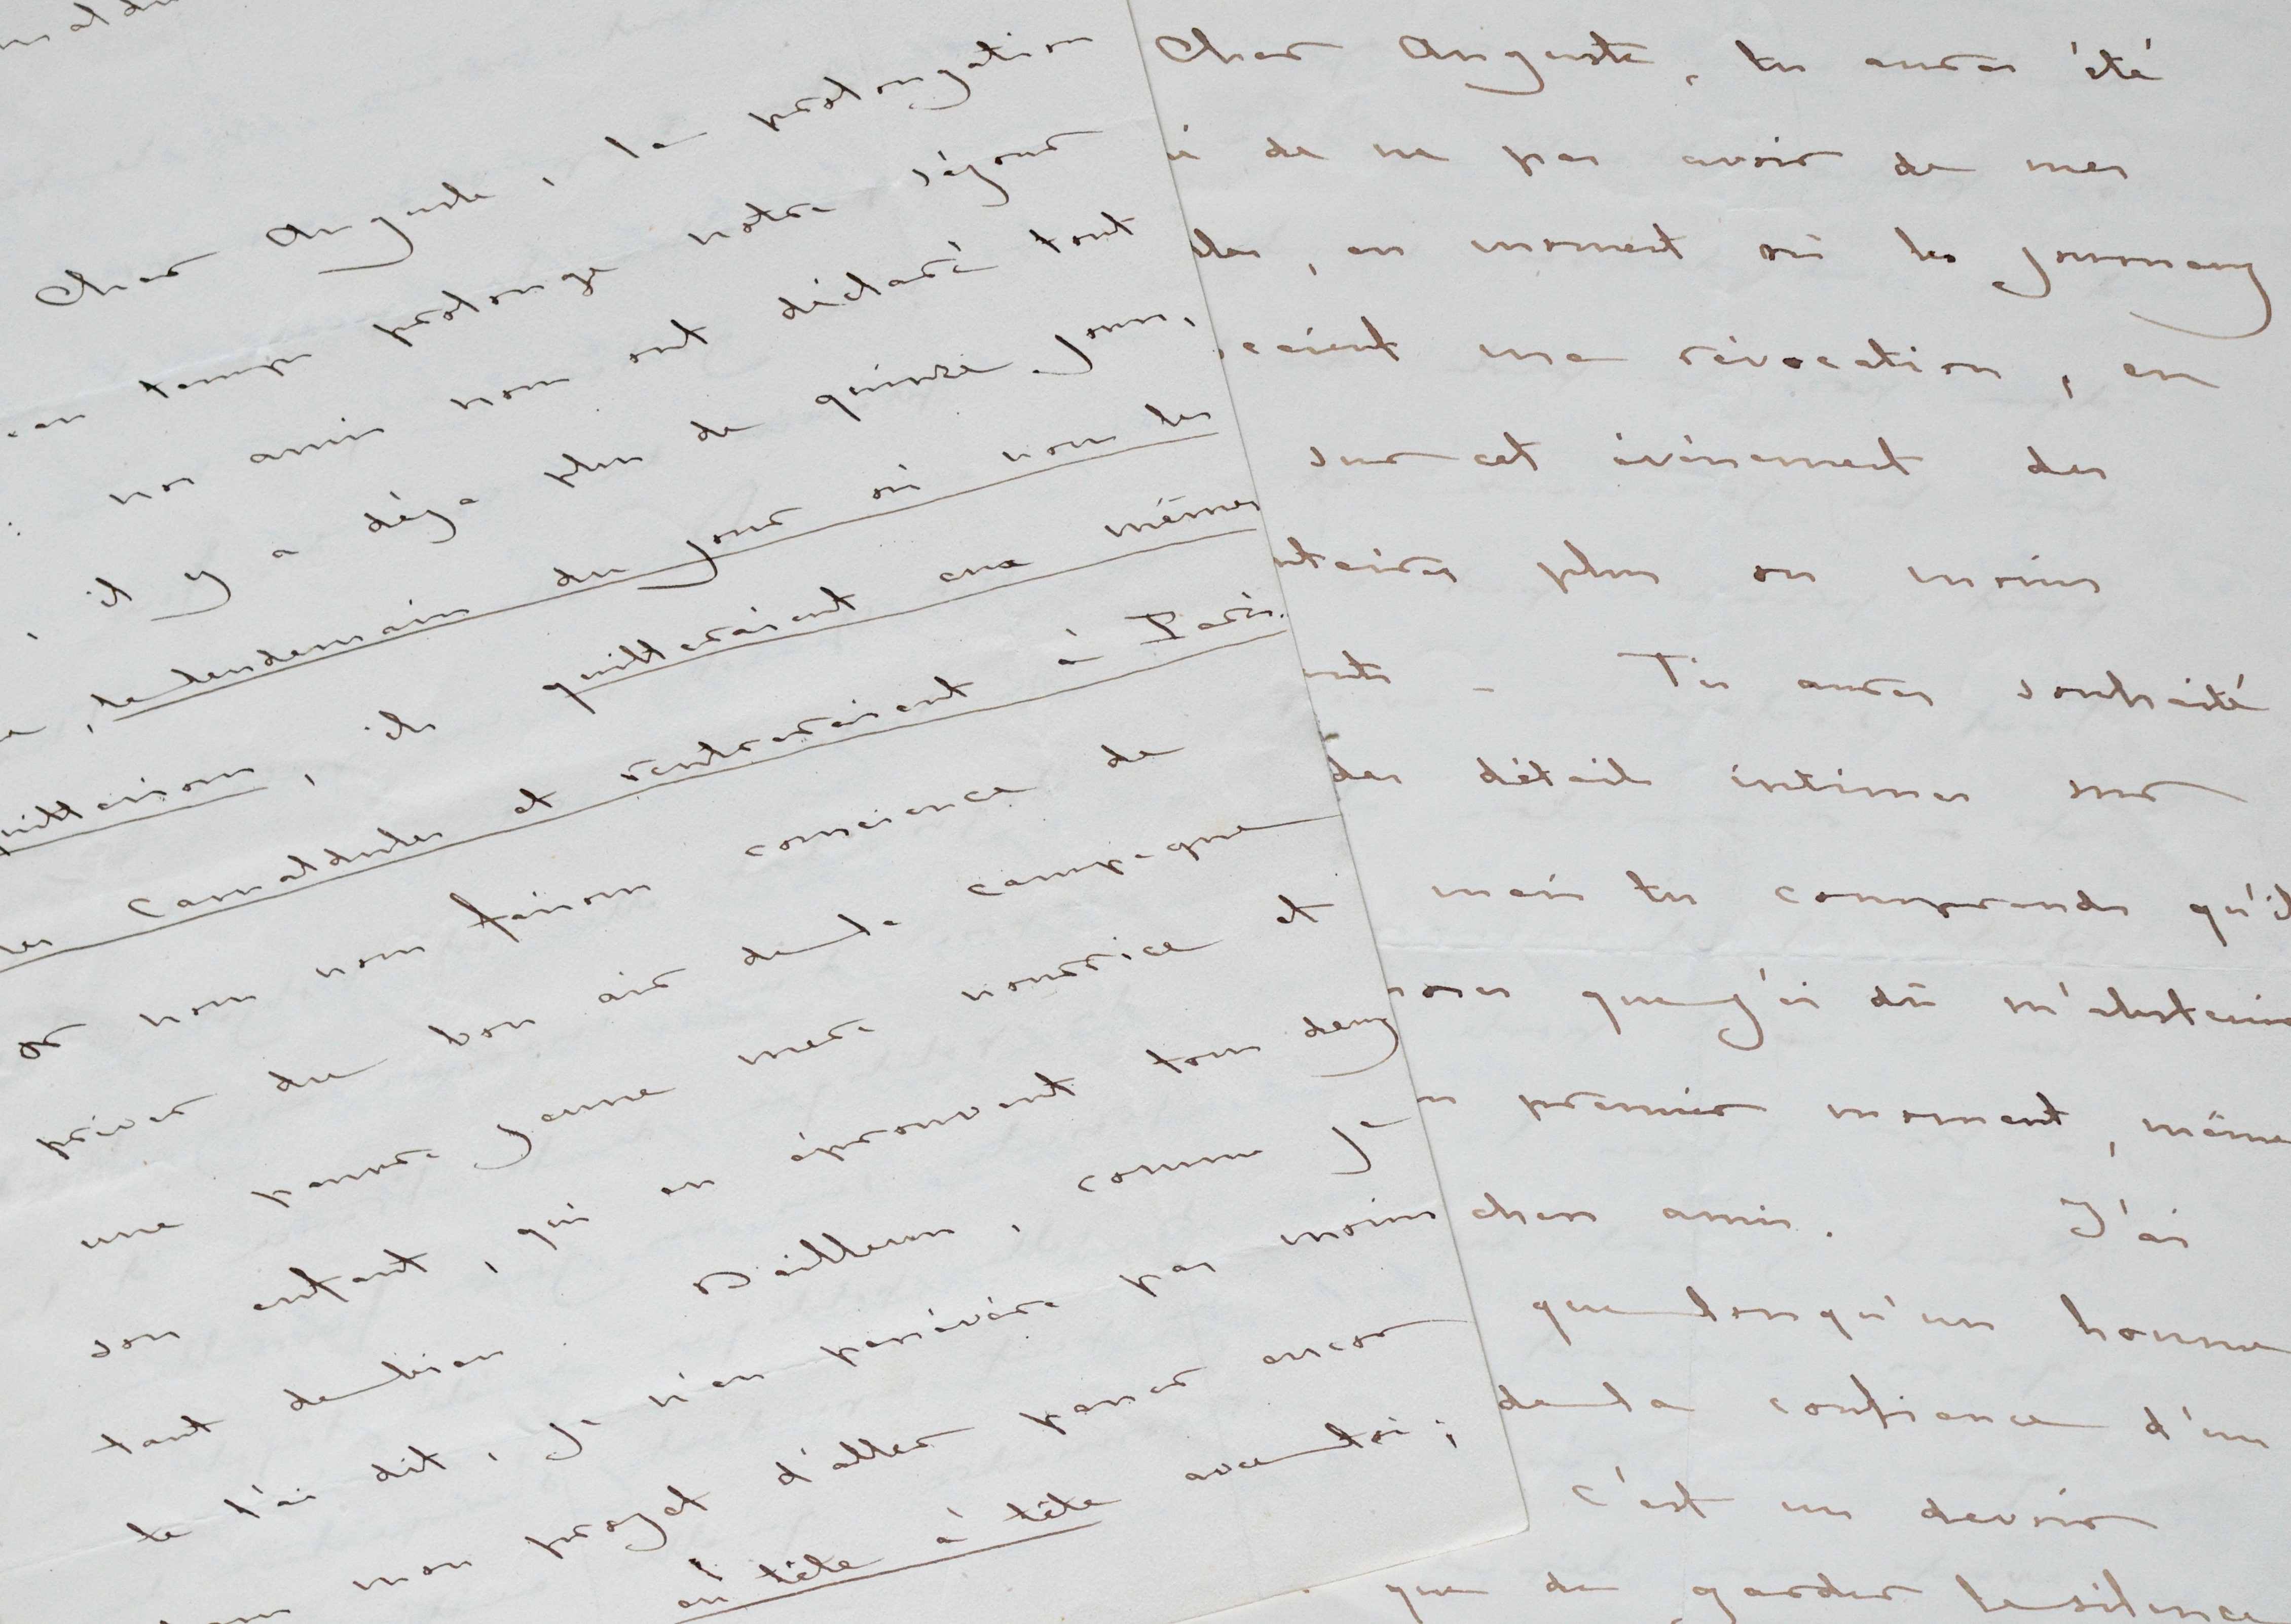 Cher Auguste, la prolongation
temps prolonge notre séjour
nos amis nous ont déclaré tout
, il y a déja plus de quinze jours,
, le lendemain du jour où nous les
quitterions, ils quitteraient eux mêmes
les Camaldules et rentreraient à Paris.
Or nous nous faisons conscience de
priver du bon air de la campagne
une pauvre jeune mère nourrice et
son enfant, qui en éprouvent tous deux
tant de bien. D'ailleurs, comme je
te l'ai dit, je n'en persévère pas moins
mon projet d'aller passer encor
en tête à tête avec toi;
Cher Auguste, tu auras été
de ne pas avoir de mes
, au moment où les journaux
ma révocation, en
sur cet évènement des
plus ou moins
Tu auras souhaité
des détails intimes sur
mais tu comprends qu'il
que j'ai dû m'abstenir
premier moment, même
chers amis. J'ai
que lorsqu'un homme
de la confiance d'un
c'est un devoir
que de garder le silence